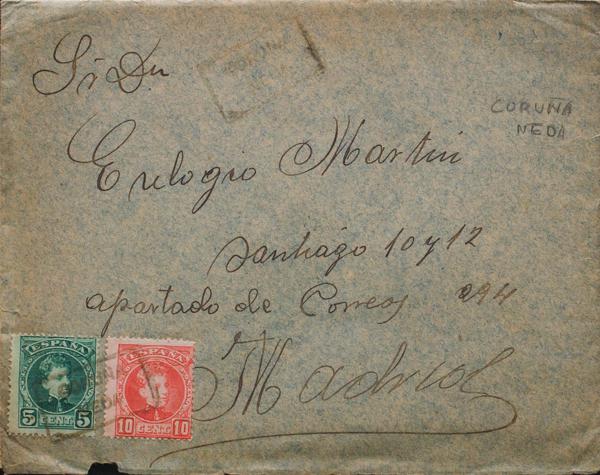 Sr Dn
CORUÑA
NEDA
Eulogio Martin
Santiago 10 y 12
apartado de Correos 294
Madrid
ESPAÑA
5 CENT. 5
ESPAÑA
10 CENT. 10